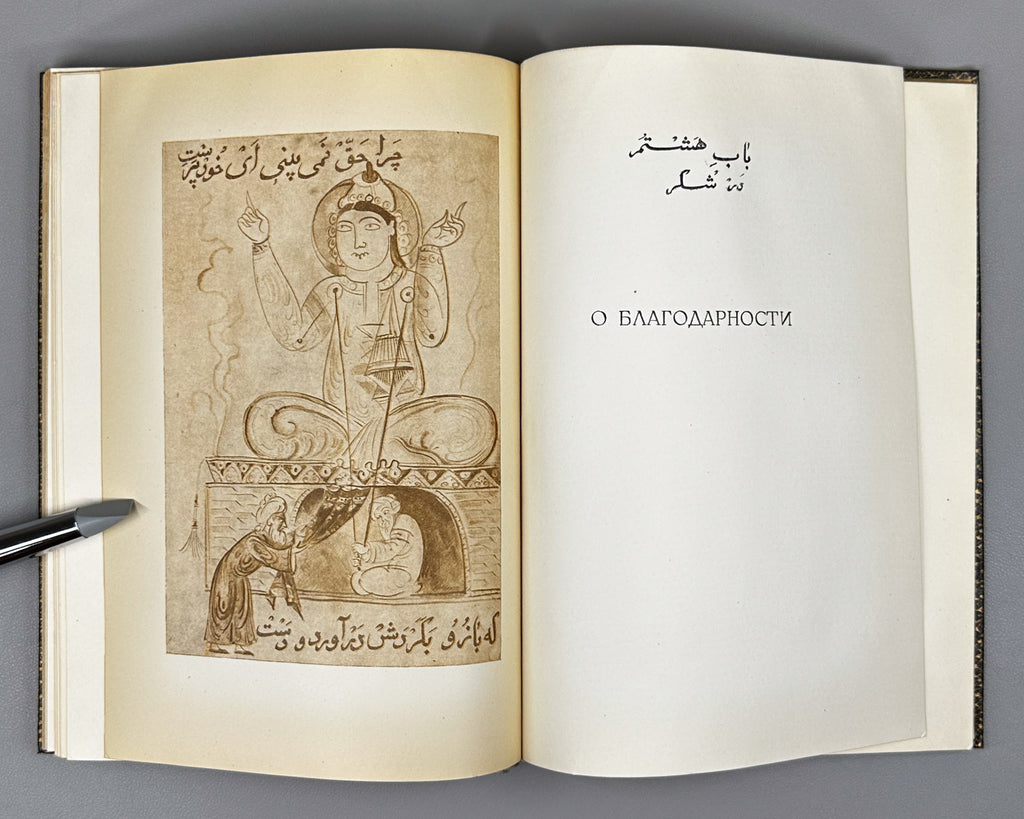 چَرا حَقّ نَمی بینی اَی خُودپَرَست
که بازُو بِگَردِش دَرآورد و دَست
بابِ هَشتُم
دَر شُکر
О БЛАГОДАРНОСТИ